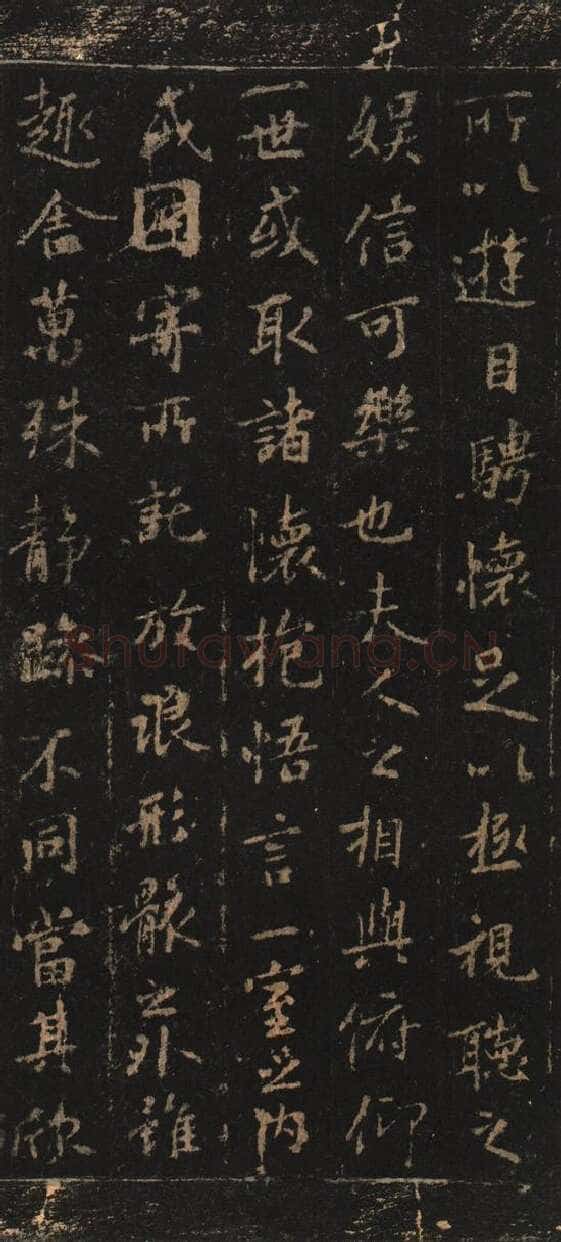 所以遊目騁懷足以極視聽之
娛信可樂也夫人之相與俯仰
一世或取諸懷抱悟言一室之內
或因寄所託放浪形骸之外雖
趣舍萬殊靜躁不同當其欣
Shufawang.CN